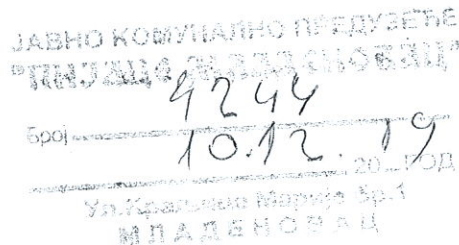 ЈАВНО КОМУНАЛНО ПРЕДУЗЕЋЕ
"ПИЈАЦЕ МЛАДЕНОВАЦ"
Број 4244
10.12. 2019 ГОД
Ул. Краљице Марије бр. 1
МЛАДЕНОВАЦ